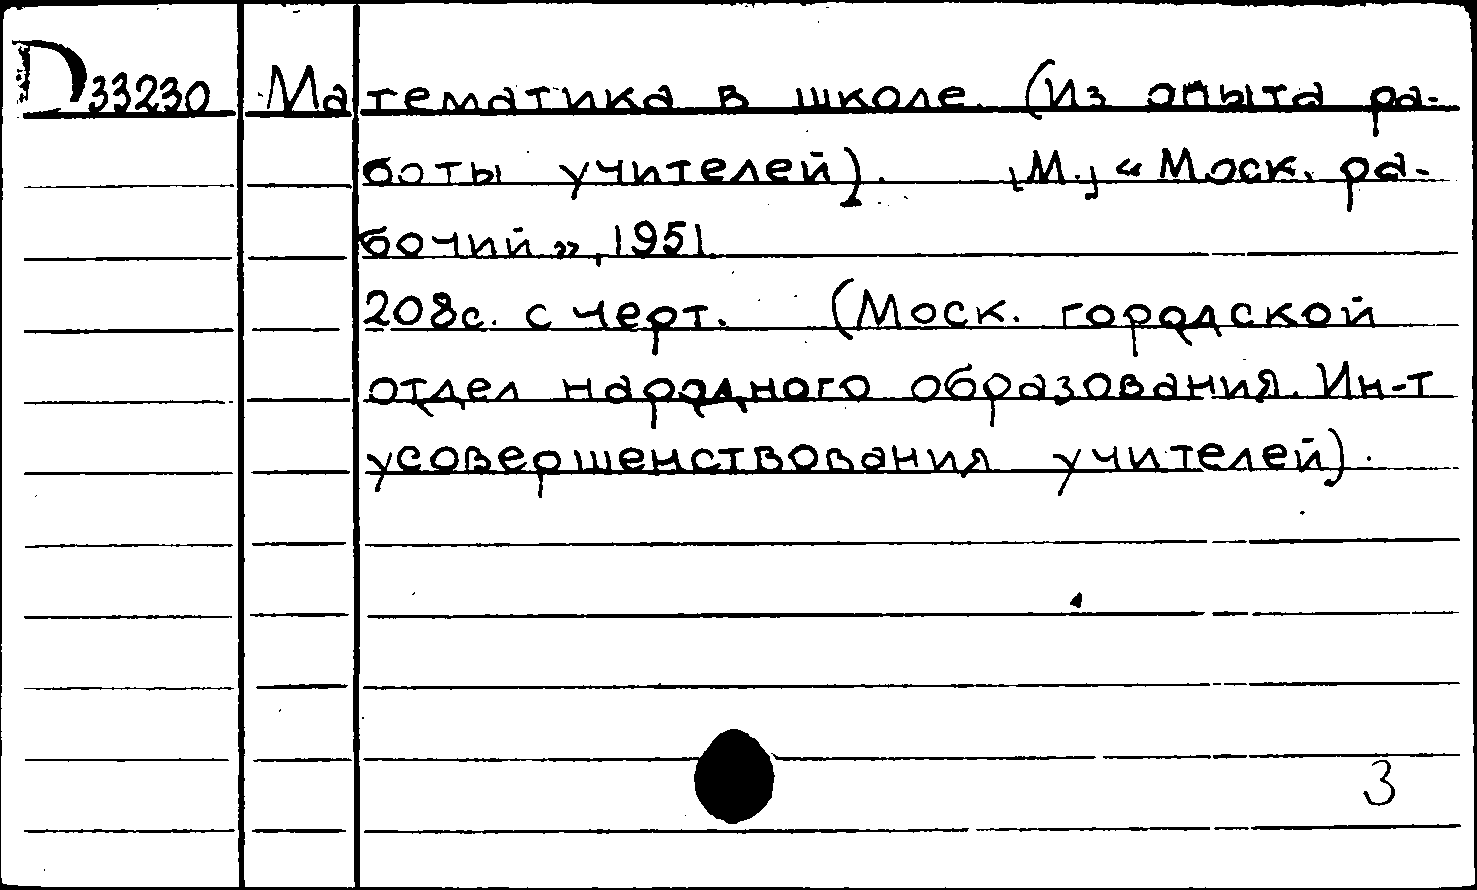 D 33230 Математика в школе. (Из опыта ра-
боты учителей). [М.] «Моск. ра-
бочий», 1951.
208с. с черт. (Моск. городской
отдел народного образования. Ин-т
усовершенствования учителей).
3